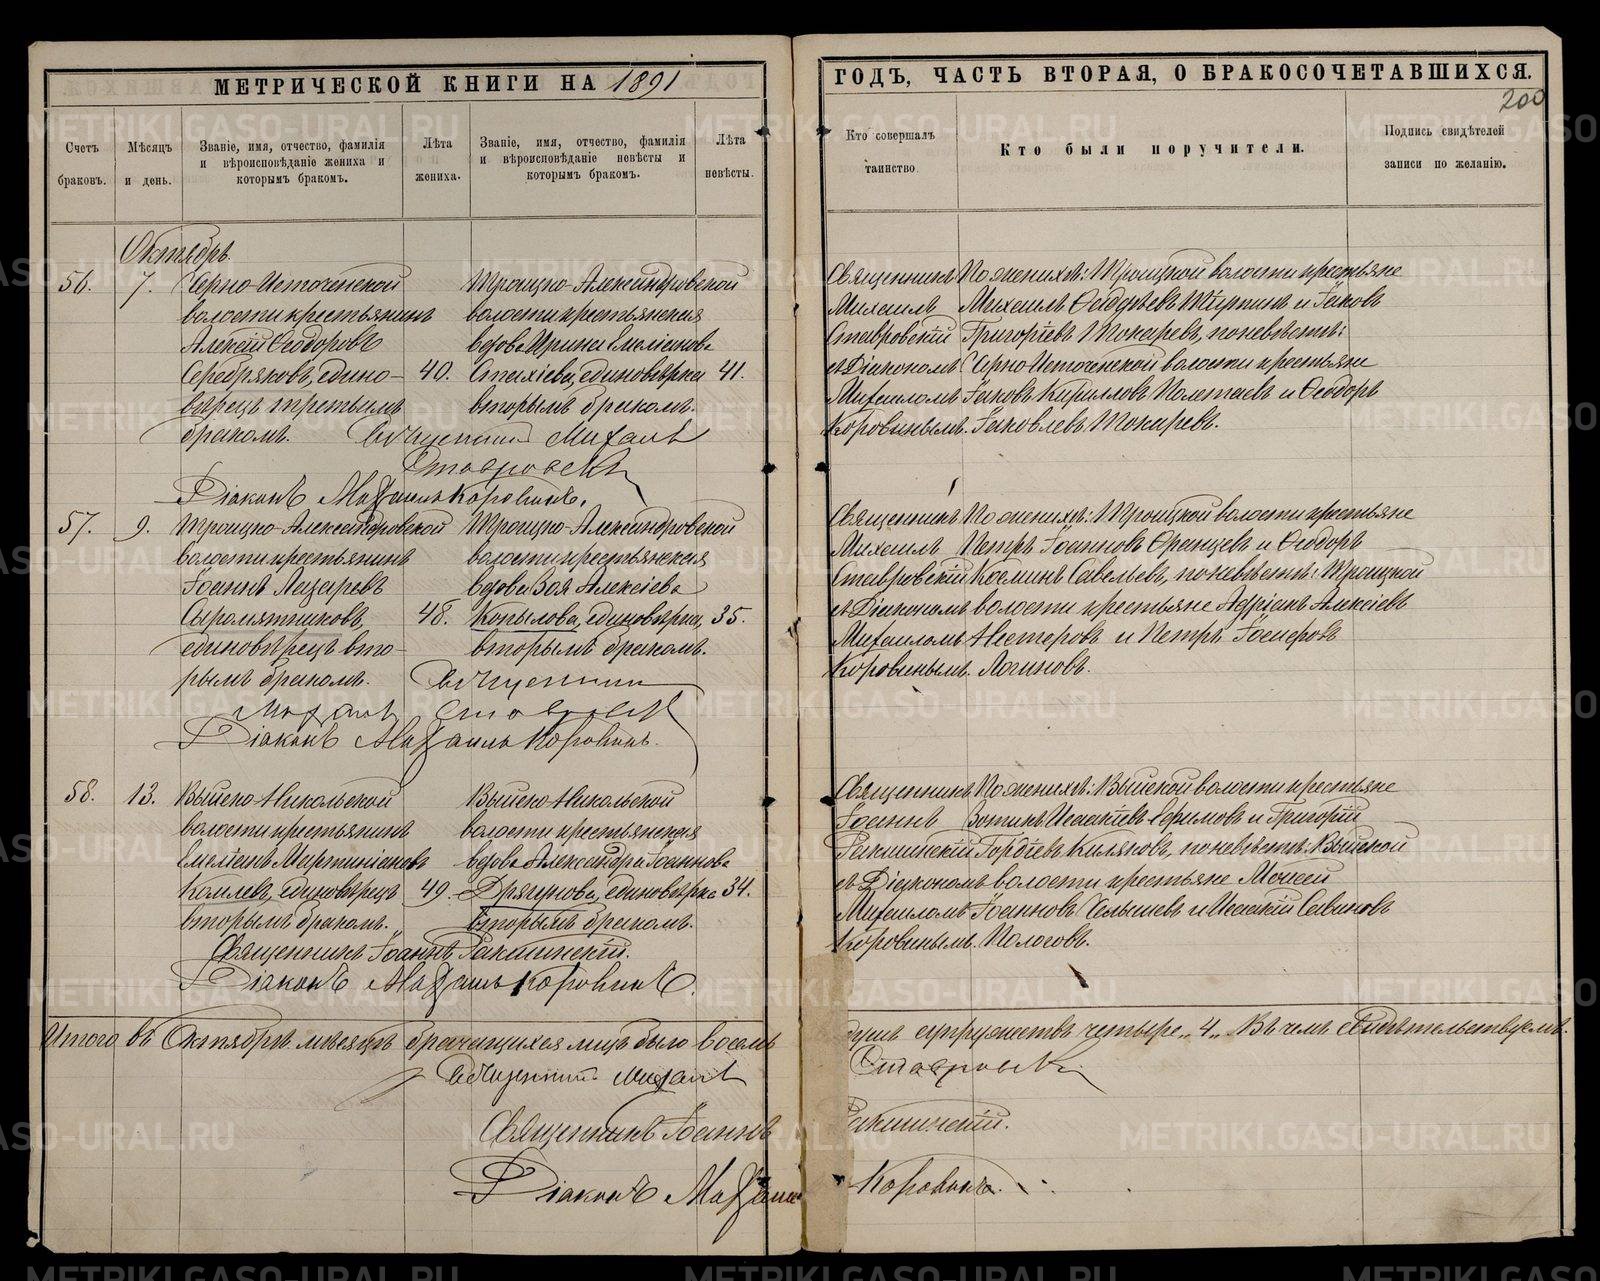 МЕТРИЧЕСКОЙ КНИГИ НА 1891
ГОДЪ, ЧАСТЬ ВТОРАЯ, О БРАКОСОЧЕТАВШИХСЯ.
200
Счетъ браковъ.
Мѣсяцъ и день.
Званіе, имя, отчество, фамилія
и вѣроисповѣданіе жениха и
которымъ бракомъ.
Лѣта жениха.
Званіе, имя, отчество, фамилія
и вѣроисповѣданіе невѣсты и
которымъ бракомъ.
Лѣта невѣсты.
Кто совершалъ таинство
Кто были поручители.
Подпись свидѣтелей
записи по желанію.
Октябрь.
56. 7. Черно-Источенской
волости крестьянинъ
Алексій Ѳеодоровъ
Серебряковъ, едино-
вѣрецъ третьимъ
бракомъ.
40.
Троицко-Александровской
волости крестьянская
вдова Ирина Емеліанова
единовѣрка
вторымъ бракомъ.
41.
Священникъ
Михаилъ
Ставровскій
съ Діакономъ
Михаиломъ
Коровинымъ.
По женихѣ: Троицкой волости крестьяне
Михаилъ и Іаковъ
Григоріевъ Токаревъ, по невѣстѣ:
Черно-Источенской волости крестьяне
Іаковъ Кирилловъ Полтаевъ и Ѳеодоръ
Іаковлевъ Токаревъ.
Священникъ Михаилъ
Ставровскій
Діаконъ Михаилъ Коровинъ.
57. 9. Троицко-Александровской
волости крестьянинъ
Іоаннъ Лазаревъ
Сыромятниковъ,
единовѣрецъ вто-
рымъ бракомъ.
48.
Троицко-Александровской
волости крестьянская
вдова Зоя Алексіева
Копылова, единовѣрка,
вторымъ бракомъ.
35.
Священникъ
Михаилъ
Ставровскій
съ Діакономъ
Михаиломъ
Коровинымъ.
По женихѣ: Троицкой волости крестьяне
Петръ Іоанновъ и Ѳеодоръ
Косминъ Савельевъ, по невѣстѣ: Троицкой
волости крестьяне Адріанъ Алексіевъ
Нестеровъ и Петръ Іосифовъ
Логиновъ.
Священникъ
Михаилъ Ставровскій
Діаконъ Михаилъ Коровинъ.
58. 13. Выйско-Никольской
волости крестьянинъ
Емеліанъ Мартиніановъ
единовѣрецъ
вторымъ бракомъ.
49.
Выйско-Никольской
волости крестьянская
вдова Александра Іоаннова
Дрягунова, единовѣрка
вторымъ бракомъ.
34.
Священникъ
Іоаннъ
съ Діакономъ
Михаиломъ
Коровинымъ.
По женихѣ: Выйской волости крестьяне
Зотикъ Исаакіевъ Ефимовъ и Григорій
Гордіевъ по невѣстѣ: Выйской
волости крестьяне Моисей
Іоанновъ Челышевъ и Исаакій Савиновъ
Пологовъ.
Священникъ Іоаннъ
Діаконъ Михаилъ Коровинъ.
Итого въ Октябрѣ мѣсяцѣ брачущихся лицъ было восемь
душъ супружествъ четыре „4„ Въ чемъ свидѣтельствуемъ.
Священникъ Михаилъ Ставровскій
Священникъ Іоаннъ
Діаконъ Михаилъ Коровинъ.
METRIKI.GASO-URAL.RU